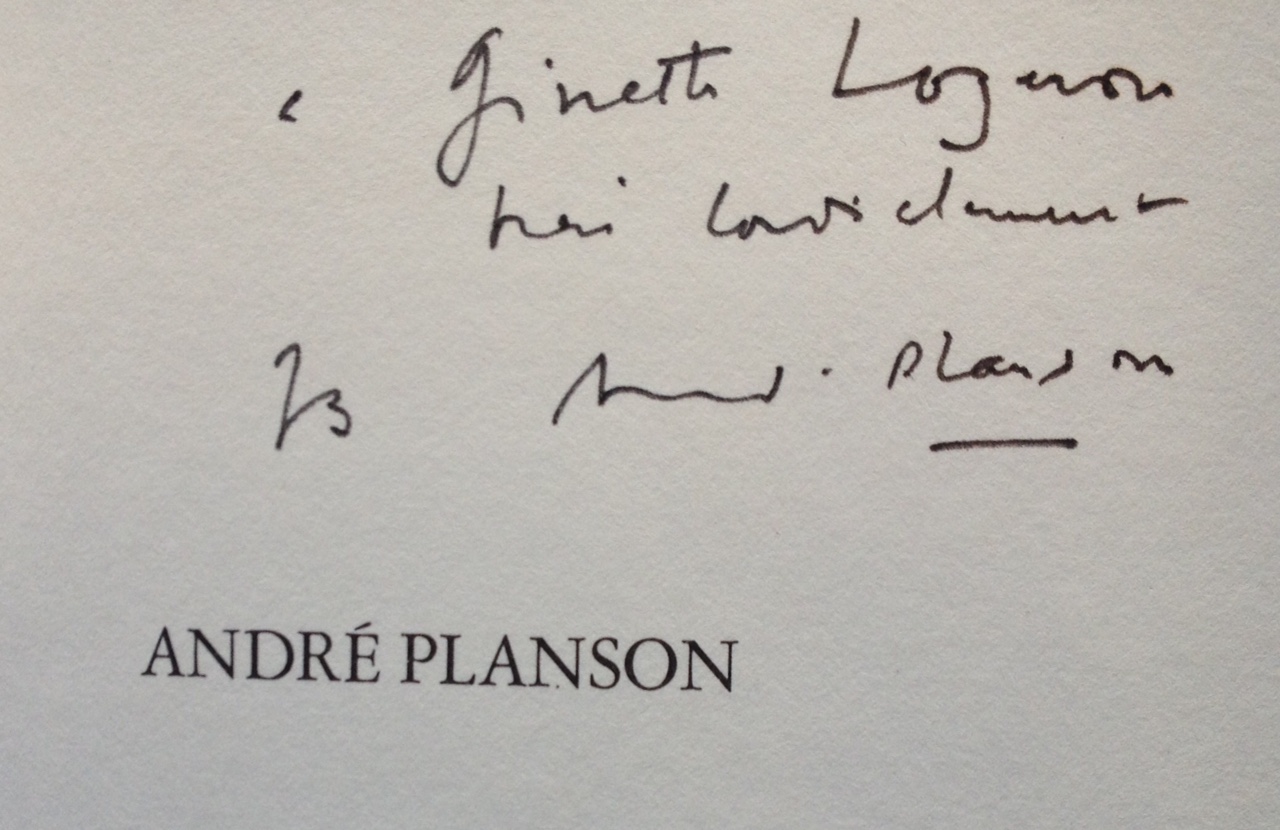 à Ginette Lognon
très cordialement
André Planson
ANDRÉ PLANSON